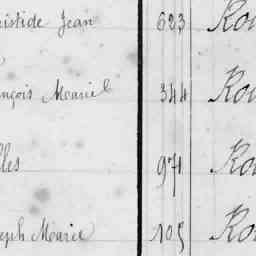 istide Jean 623 Ro
nçois Marie 344 Ro
lles 971 Ro
seph Marie 105 Ro